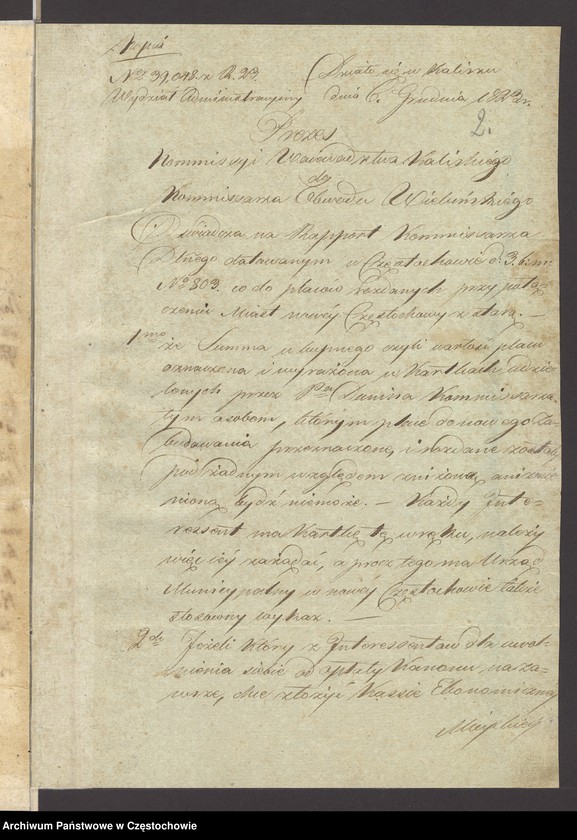 Kopia
No 39,048 z R. 23.
Działo się w Kaliszu
Wydział Administracyjny dnia 6. Grudnia 1823 r.
2.
Prezes
Kommissyi Województwa Kaliskiego
do
Kommissarza Obwodu Wieluńskiego
Oświadcza na Rapport Kommissarza
Dlnego datowanym w Częstochowie d. 3. b. m.
No 803. co do placów rozdanych przy połą-
czeniu Miast nowéy Częstochowy z starą. —
1mo że Summa wkupnego czyli wartość placu
oznaczona i wyrażona w Kartkach udzie-
lonych przez Pna Kommissarza
tym osobom, którym place do nowego za-
budowania przeznaczone i rozdane zostały
pod żadnym względem zniżoną ani zmie-
nioną bydź niemoże. — Każdy Inte-
ressent ma Kartkę tę w ręku, należy
więc iéy zażądać, a procz tego ma Urząd
Municypalny w nowéy Częstochowie także
stosowny wykaz. —
2do Jeżeli który z Interessentów dla uwol-
nienia siebie od opłaty Kanonu, na za-
wsze, chce złożyć Kassie Ekonomicznej
Mieyskiéy
Archiwum Państwowe w Częstochowie